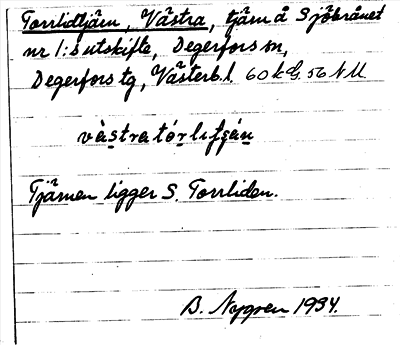 Torrlidtjärn, Västra, tjärn å Sjöbrånet
nr 1:s utskifte, Degerfors sn,
Degerfors tg, Västerb. l. 60 k G. 56 N M
vàstratórlifçán
Tjärnen ligger S. Torrliden.
B. Nygren 1934.